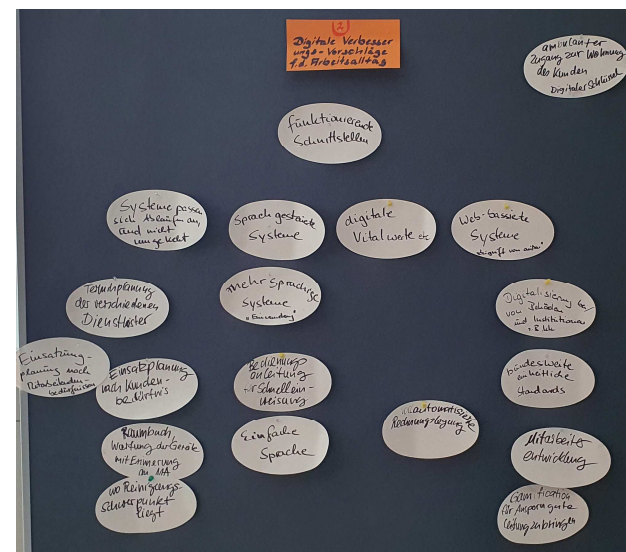 Digitale Verbesser
ungs-Vorschläge
f.d. Arbeitsalltag
ambulanter
Zugang zur Wohnung
des Kunden
Digitaler Schlüssel
funktionierende
Schnittstellen
Systeme passen
sich Abläufen an,
und nicht
umgekehrt
Sprachgesteuerte
Systeme
digitale
Vitalwerte etc
Web-basierte
Systeme
Terminplanung
der verschiedenen
Dienstleister
mehrsprachige
Systeme
Digitalisierung bei
von Behörden
und Institutionen
Einsatzung-
planung nach
Mitarbeitenden-
bedürfnissen
Einsatzplanung
nach Kunden-
bedürfnis
Bedienungs
anleitung
zur Schnellein-
weisung
bundesweite
einheitliche
Standards
Raumbuch
Wartung der Geräte
mit Erinnerung
an MA
Einfache
Sprache
automatisierte
Rechnungslegung
Mitarbeiter
entwicklung
wo Reinigungs-
schwerpunkt
liegt
Gamification
für Ansporn gute
Leistung zu bringen